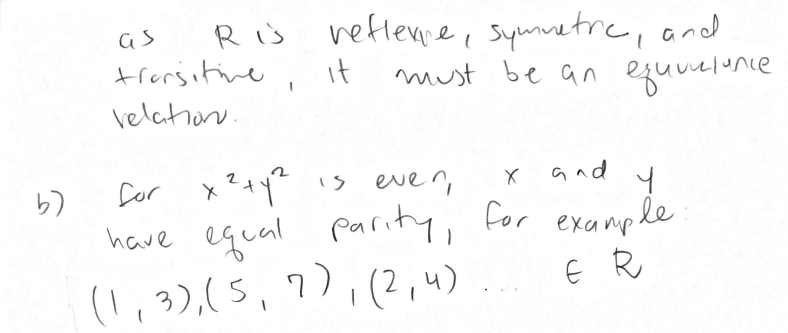 as R is reflexive, symmetric, and
transitive, it must be an equivalence
relation.
b) for x²+y² is even, x and y
have equal parity, for example:
(1, 3), (5, 7), (2, 4) ... ∈ R